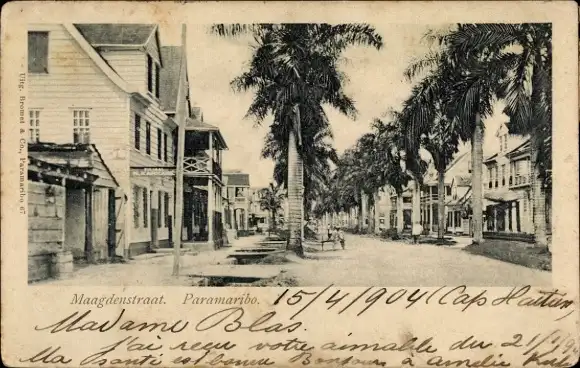 Uitg. Bromet & Co., Paramaribo 67
Maagdenstraat. Paramaribo. 15/4/904 (Cap Haitien
Madame Blas.
J'ai reçu votre aimable du 21/
Ma santé est bonne Bonjours à Amelie